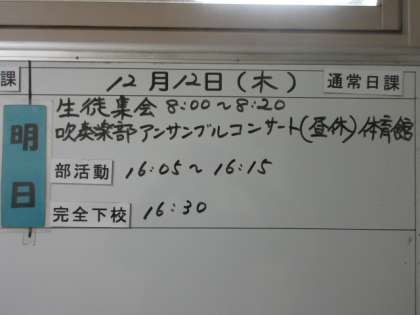 課 12月12日(木) 通常日課
明日
生徒集会 8:00～8:20
吹奏楽部アンサンブルコンサート(昼休)体育館
部活動 16:05～16:15
完全下校 16:30